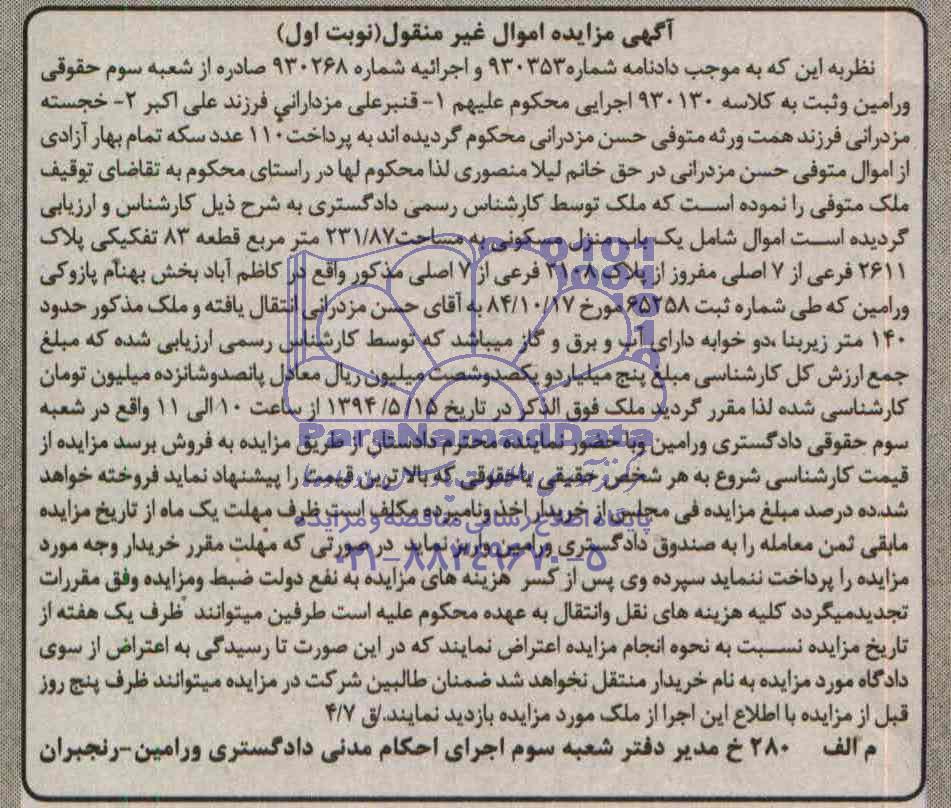 آگهی مزایده اموال غیر منقول(نوبت اول)
نظربه این که به موجب دادنامه شماره۹۳۰۳۵۳ و اجرائیه شماره ۹۳۰۲۶۸ صادره از شعبه سوم حقوقی
ورامین وثبت به کلاسه ۹۳۰۱۳۰ اجرایی محکوم علیهم ۱- قنبرعلی مزدارانی فرزند علی اکبر ۲- خجسته
مزدرانی فرزند همت ورثه متوفی حسن مزدرانی محکوم گردیده اند به پرداخت۱۱۰ عدد سکه تمام بهار آزادی
از اموال متوفی حسن مزدرانی در حق خانم لیلا منصوری لذا محکوم لها در راستای محکوم به تقاضای توقیف
ملک متوفی را نموده است که ملک توسط کارشناس رسمی دادگستری به شرح ذیل کارشناس و ارزیابی
گردیده است اموال شامل یک باب منزل مسکونی به مساحت۲۳۱/۸۷ متر مربع قطعه ۸۳ تفکیکی پلاک
۲۶۱۱ فرعی از ۷ اصلی مفروز از پلاک ۲۱۰۸ فرعی از ۷ اصلی مذکور واقع در کاظم آباد بخش بهنام پازوکی
ورامین که طی شماره ثبت ۶۵۲۵۸ مورخ ۸۴/۱۰/۱۷ به آقای حسن مزدرانی انتقال یافته و ملک مذکور حدود
۱۴۰ متر زیربنا ،دو خوابه دارای آب و برق و گاز میباشد که توسط کارشناس رسمی ارزیابی شده که مبلغ
جمع ارزش کل کارشناسی مبلغ پنج میلیاردو یکصدوشصت میلیون ریال معادل پانصدوشانزده میلیون تومان
کارشناسی شده لذا مقرر گردید ملک فوق الذکر در تاریخ ۱۳۹۴/۵/۱۵ از ساعت ۱۰ الی ۱۱ واقع در شعبه
سوم حقوقی دادگستری ورامین وباحضور نماینده محترم دادستان از طریق مزایده به فروش برسد مزایده از
قیمت کارشناسی شروع به هر شخص حقیقی یاحقوقی که بالاترین قیمت را پیشنهاد نماید فروخته خواهد
شد.ده درصد مبلغ مزایده فی مجلس از خریدار اخذ ونامبرده مکلف است ظرف مهلت یک ماه از تاریخ مزایده
مابقی ثمن معامله را به صندوق دادگستری ورامین واریز نماید در صورتی که مهلت مقرر خریدار وجه مورد
مزایده را پرداخت ننماید سپرده وی پس از کسر هزینه های مزایده به نفع دولت ضبط ومزایده وفق مقررات
تجدیدمیگردد کلیه هزینه های نقل وانتقال به عهده محکوم علیه است طرفین میتوانند ظرف یک هفته از
تاریخ مزایده نسبت به نحوه انجام مزایده اعتراض نمایند که در این صورت تا رسیدگی به اعتراض از سوی
دادگاه مورد مزایده به نام خریدار منتقل نخواهد شد ضمنان طالبین شرکت در مزایده میتوانند ظرف پنج روز
قبل از مزایده با اطلاع این اجرا از ملک مورد مزایده بازدید نمایند./ق ۴/۷
م الف ۲۸۰ خ مدیر دفتر شعبه سوم اجرای احکام مدنی دادگستری ورامین-رنجبران
ParsNamadData
پایگاه اطلاع رسانی مناقصه و مزایده
۰۲۱-۸۸۳۴۹۶۷۰-۵